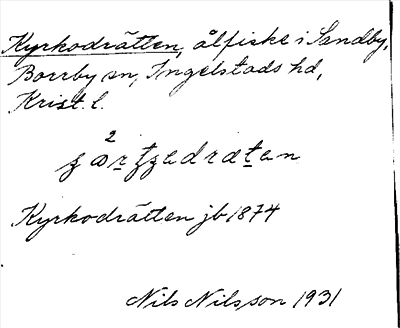 Kyrkodrätten, ålfiske i Sandby,
Borrby sn, Ingelstads hd,
Krist. l.
Kyrkodrätten jb 1874
Nils Nilsson 1931